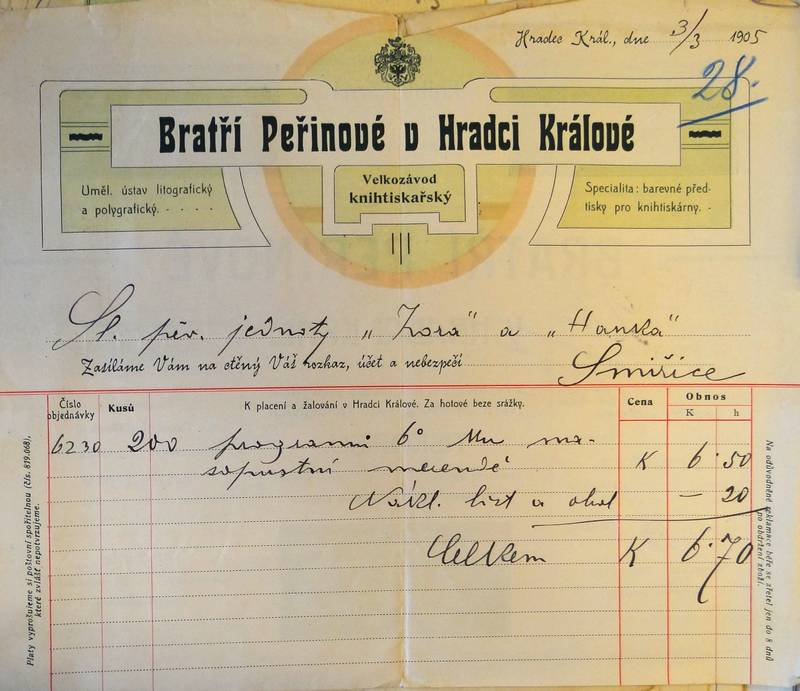 Hradec Král., dne 3/3 1905
28.
Bratří Peřinové v Hradci Králové
Uměl. ústav litografický
a polygrafický.
Velkozávod
knihtiskařský
Specialita: barevné před-
tisky pro knihtiskárny.
Sl. pěv. jednoty „Zora" a „Hanka"
Zasíláme Vám na ctěný Váš rozkaz, účet a nebezpečí
Smiřice
Číslo objednávky
Kusů
K placení a žalování v Hradci Králové. Za hotové beze srážky.
Cena
Obnos
K h
6230 200 programů 6° ma-
sopustní merendě K 6·50
Nákl. list a obal — 20
Celkem K 6·70
Platy vyprošujeme si poštovní spořitelnou (čís. 819.068),
které zvlášť nepotvrzujeme.
Na odůvodněné reklamace běře se zřetel jen do 8 dnů
po obdržení zboží.